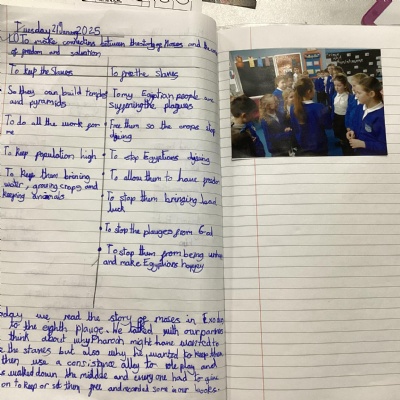 Tuesday 21 January 2025
LO To make connections between the story of Moses and the
of freedom and salvation.
To keep the slaves
To free the slaves
So they can build temples
and pyramids
To my Egyption people are
suffering the plagues
To do all the work for
me
Free them so the crops stop
dying
To keep population high
To stop Egyptians dying
To keep them brining
water, growing crops and
keeping animals
To allow them to have freedom
To stop them bringing bad
luck
To stop the plauges from God
To stop them from being
and make Egyptians happy
oday we read the story of moses in Exodus
to the eighth plauge. We talked with our partners
think about why Pharoah might have wanted to
the slaves but also why he wanted to keep them
then use a consistance alley to role play and
walked down the middle and every one had to give
on to keep or set then free and recorded some in our books.